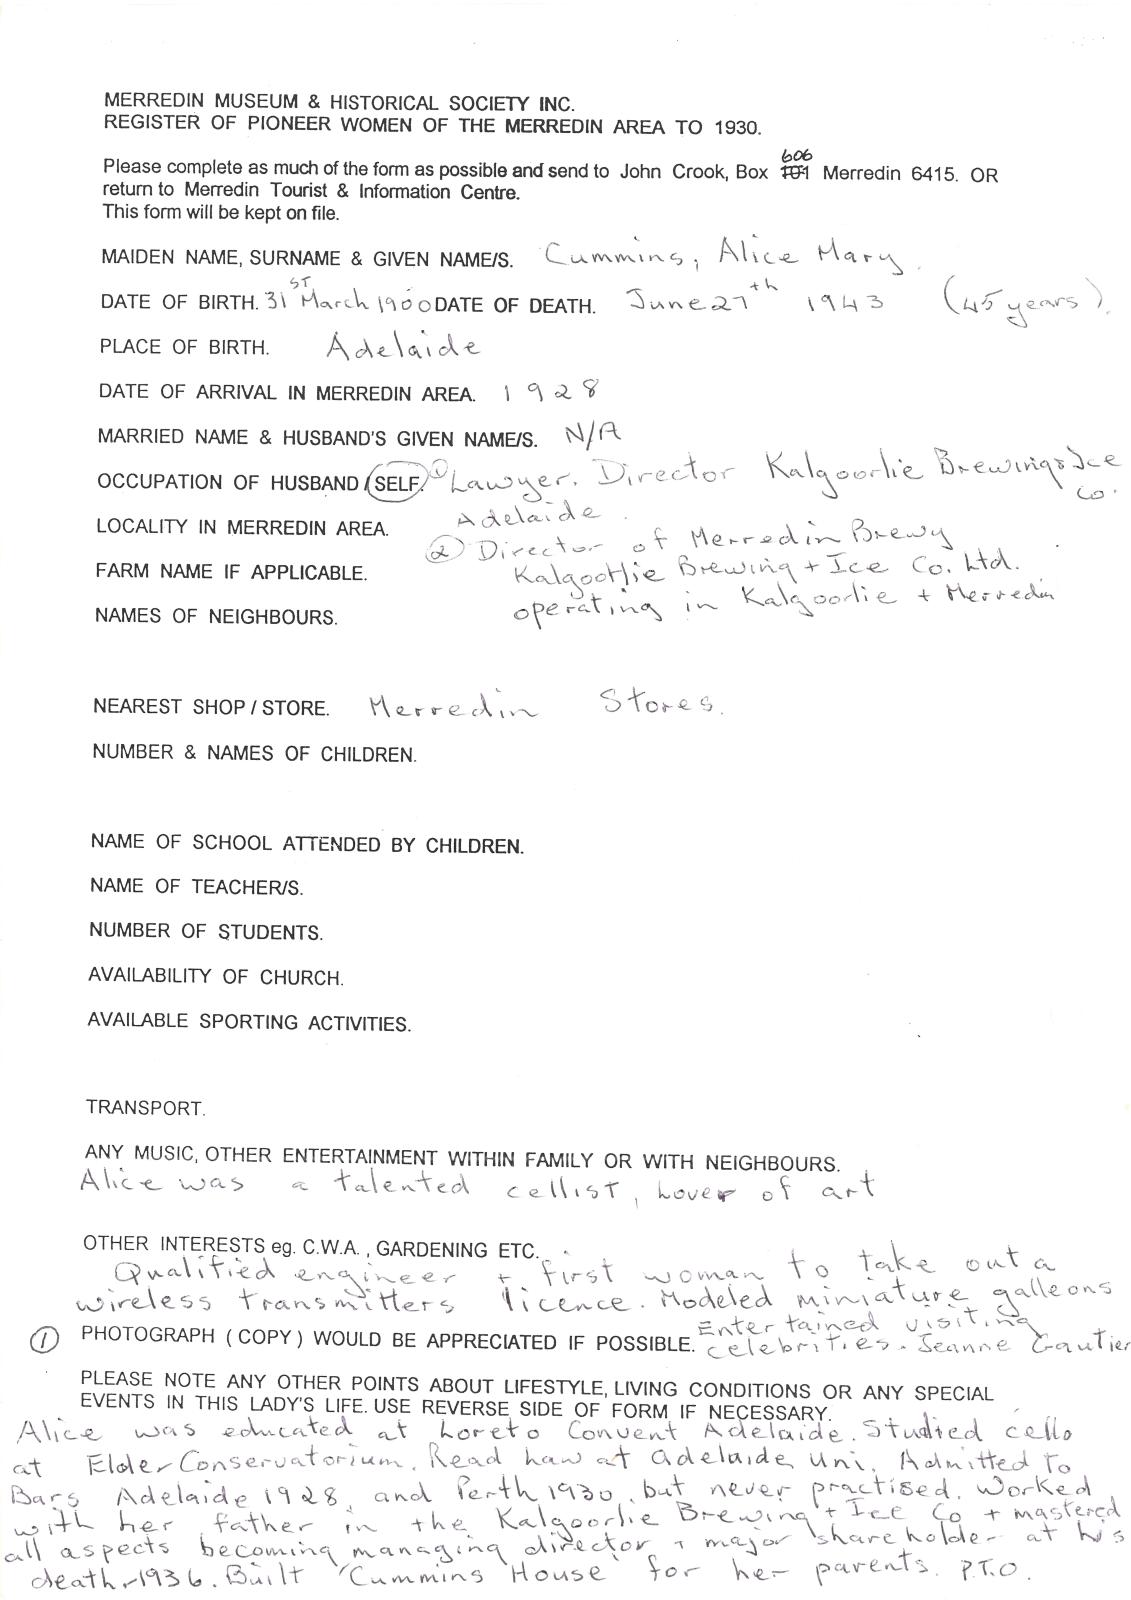 MERREDIN MUSEUM & HISTORICAL SOCIETY INC.
REGISTER OF PIONEER WOMEN OF THE MERREDIN AREA TO 1930.
606
Please complete as much of the form as possible and send to John Crook, Box 101 Merredin 6415. OR
return to Merredin Tourist & Information Centre.
This form will be kept on file.
MAIDEN NAME, SURNAME & GIVEN NAME/S. Cummins, Alice Mary.
DATE OF BIRTH. 31ST March 1900 DATE OF DEATH. June 27th 1943 (45 years).
PLACE OF BIRTH. Adelaide
DATE OF ARRIVAL IN MERREDIN AREA. 1928
MARRIED NAME & HUSBAND'S GIVEN NAME/S. N/A
OCCUPATION OF HUSBAND / SELF. ① Lawyer. Director Kalgoorlie Brewing & Ice Co.
LOCALITY IN MERREDIN AREA. Adelaide.
② Director of Merredin Brewy
FARM NAME IF APPLICABLE. Kalgoorlie Brewing + Ice Co. Ltd.
NAMES OF NEIGHBOURS. operating in Kalgoorlie + Merredin
NEAREST SHOP / STORE. Merredin Stores.
NUMBER & NAMES OF CHILDREN.
NAME OF SCHOOL ATTENDED BY CHILDREN.
NAME OF TEACHER/S.
NUMBER OF STUDENTS.
AVAILABILITY OF CHURCH.
AVAILABLE SPORTING ACTIVITIES.
TRANSPORT.
ANY MUSIC, OTHER ENTERTAINMENT WITHIN FAMILY OR WITH NEIGHBOURS.
Alice was a talented cellist, lover of art
OTHER INTERESTS eg. C.W.A. , GARDENING ETC.
Qualified engineer + first woman to take out a
wireless transmitters licence. Modeled miniature galleons
Entertained visiting
① PHOTOGRAPH ( COPY ) WOULD BE APPRECIATED IF POSSIBLE. celebrities. Jeanne Gautier
PLEASE NOTE ANY OTHER POINTS ABOUT LIFESTYLE, LIVING CONDITIONS OR ANY SPECIAL
EVENTS IN THIS LADY'S LIFE. USE REVERSE SIDE OF FORM IF NECESSARY.
Alice was educated at Loreto Convent Adelaide. Studied cello
at Elder Conservatorium. Read Law at Adelaide Uni. Admitted to
Bars Adelaide 1928, and Perth 1930, but never practised. Worked
with her father in the Kalgoorlie Brewing + Ice Co + mastered
all aspects becoming managing director + major shareholder at his
death -1936. Built 'Cummins House' for her parents. P.T.O.